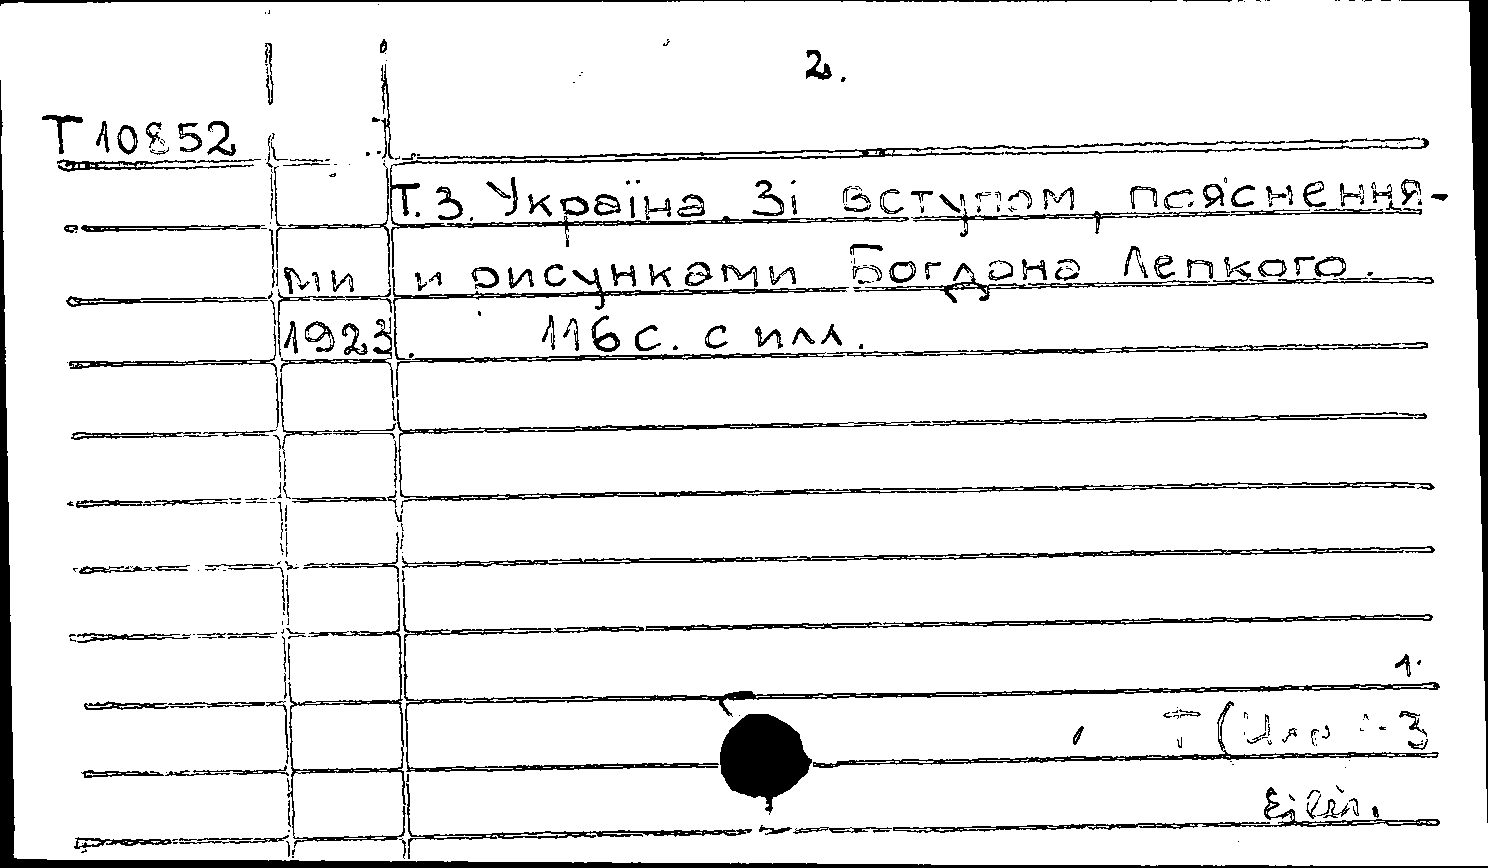 2.
Т 10852
Т. 3. Україна. Зі вступом, пояснення-
ми и рисунками Богдана Лепкого.
1923. 116 с. с илл.
1.